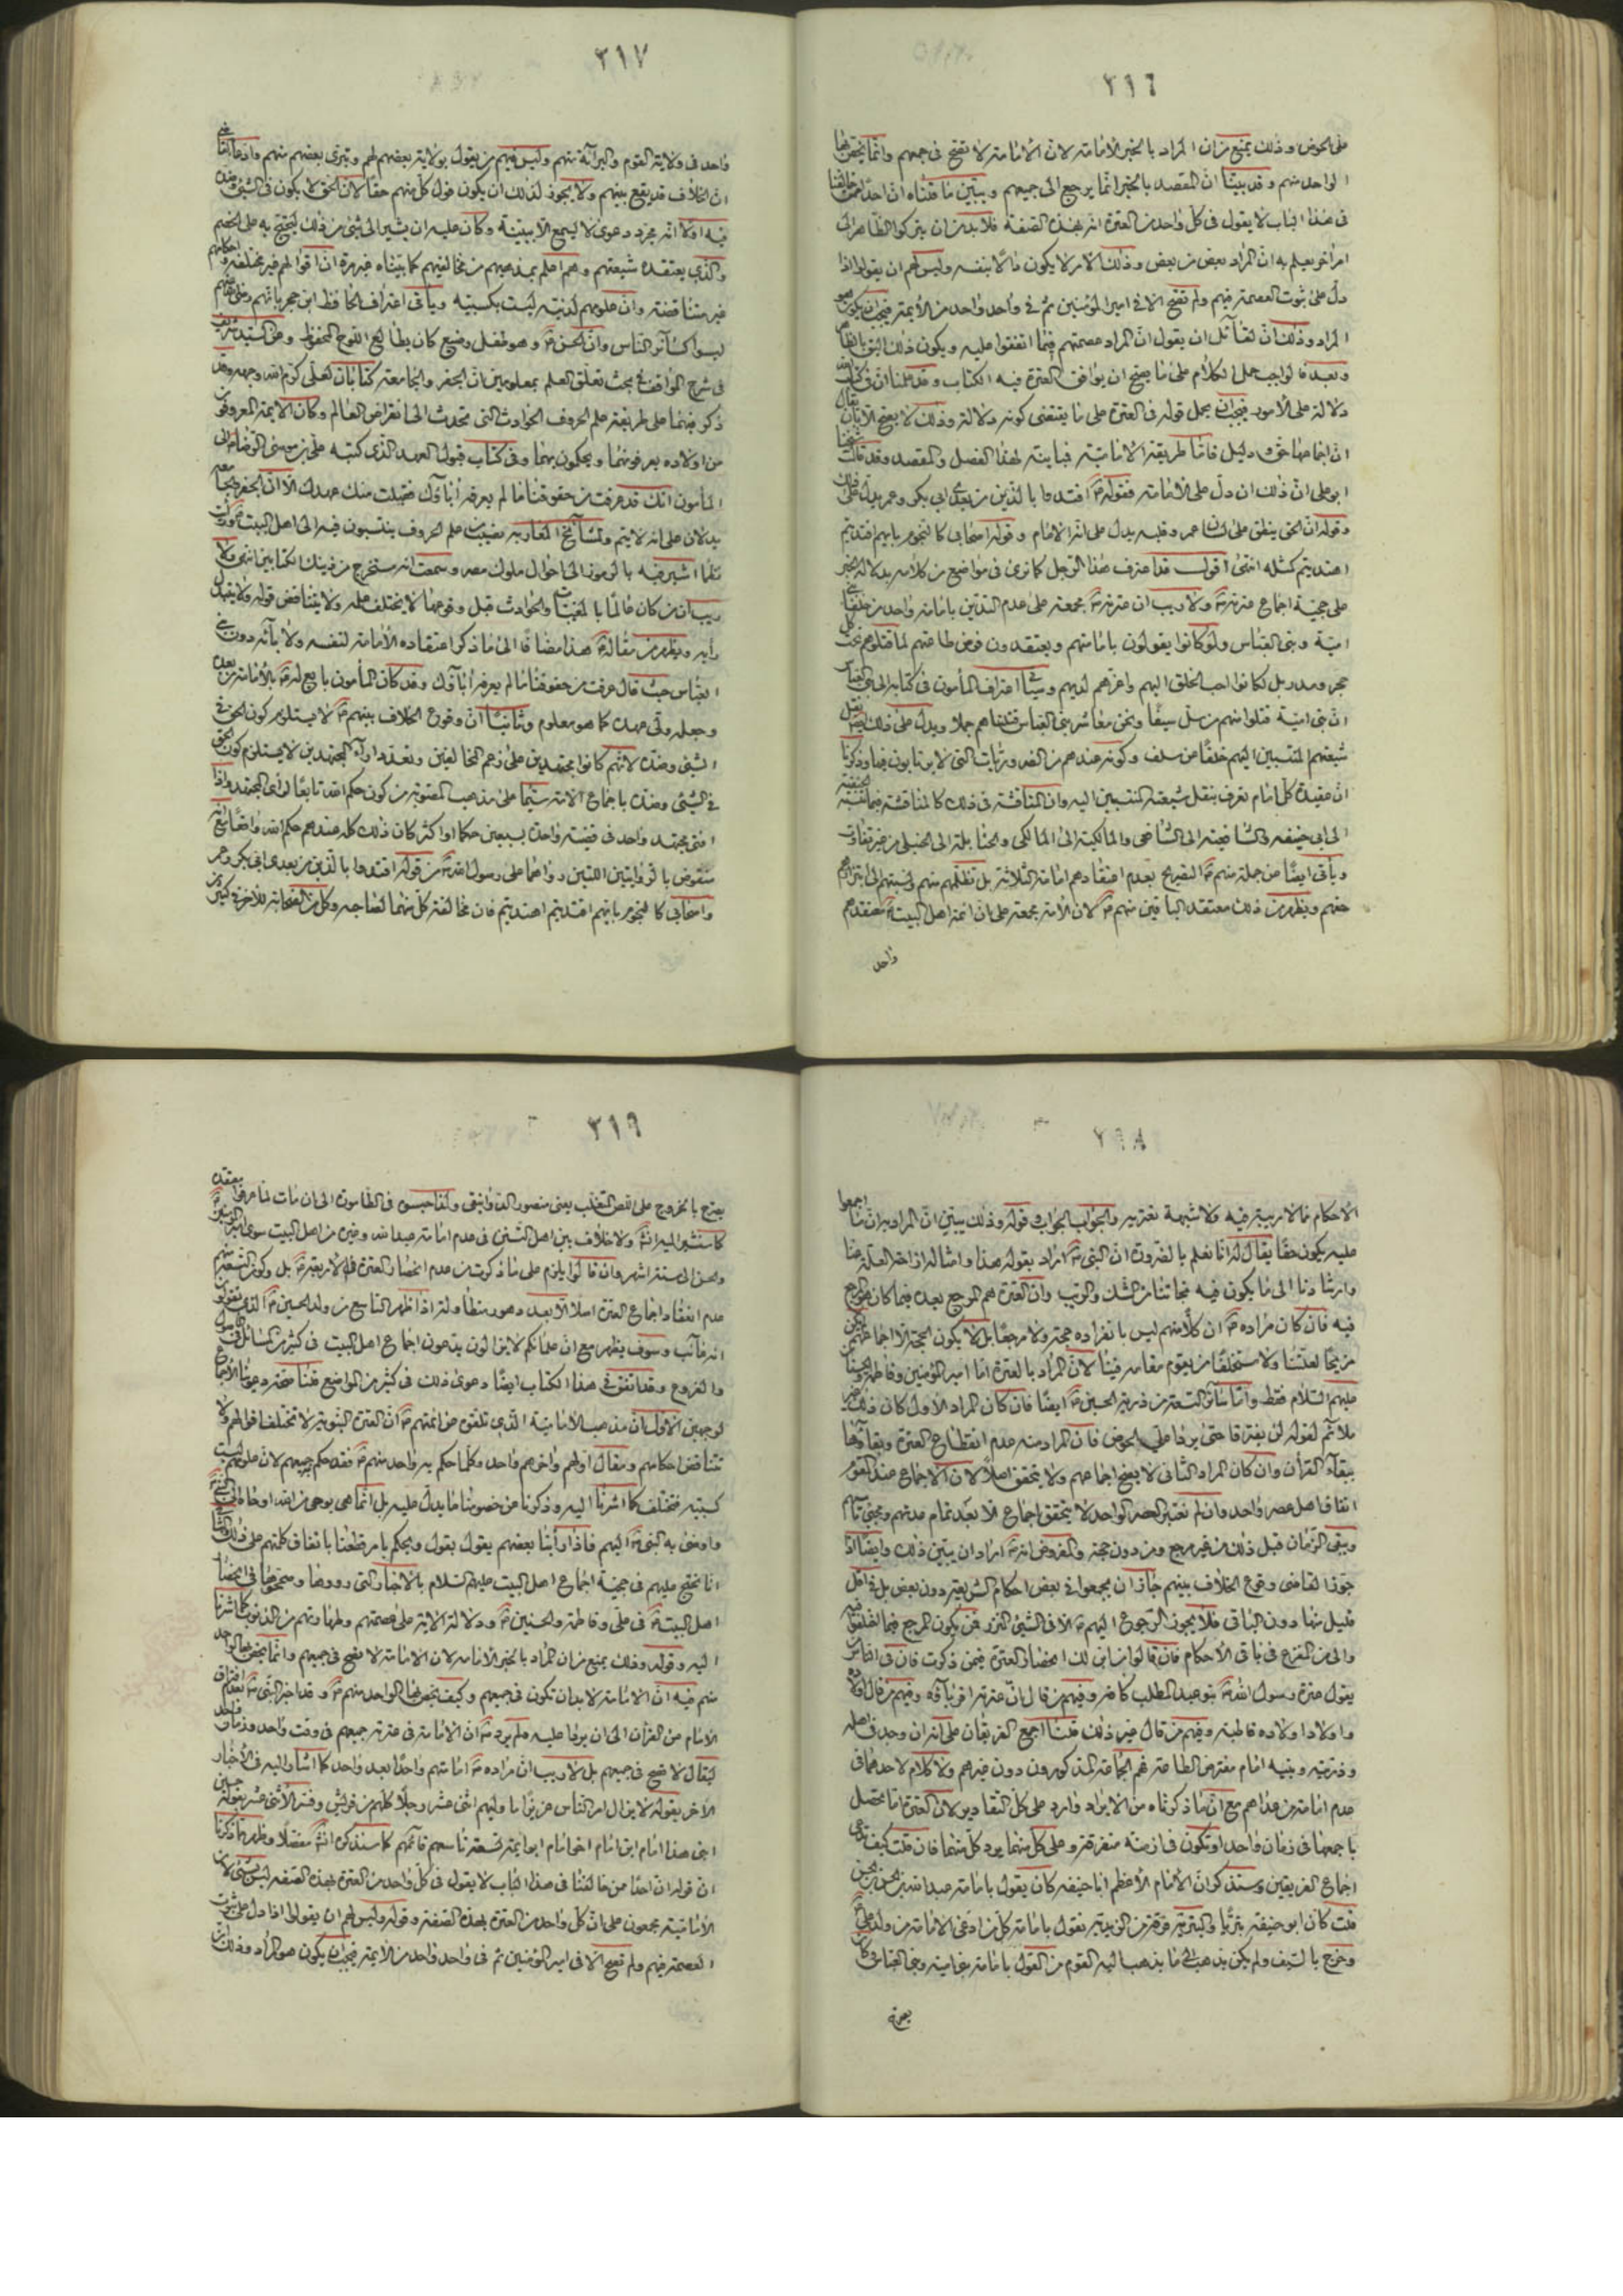 ٣١٦
على الحوض وذلك يمنع من ان المراد بالخبر الامامة لان الامامة لا تصح في جميعهم وانما يختص بها
الواحد منهم وقد بيّنا ان المقصد بالخبر انما يرجع الى جميعهم ويبين ما قلناه ان احدا ممن خالفنا
في هذا الباب لا يقول في كل واحد من العترة انه بهذه الصفة فلا بد من ان يتركوا الظاهر الى
امر اخر يعلم به ان المراد بعض من بعض وذلك الامر لا يكون دالا بنفسه وليس لهم ان يقولوا اذا
دل على ثبوت العصمة فيهم ولم تصح الا في امير المؤمنين ثم في واحد واحد من الأئمة فيجب ان يكون هو
المراد وذلك ان لقائل ان يقول ان المراد عصمتهم فيما اتفقوا عليه ويكون ذلك اليق بالظاهر
وبعد فالواجب حمل الكلام على ما يصح ان يوافق العترة فيه الكتاب وقد علمنا ان في كتاب الله
دلالة على الأمور فيجب ان يحمل قوله في العترة على ما يقتضي كونه دلالة وذلك لا يصح الا بان يقال
ان اجماعها حق ودليل فاما طريقة الامامية فمباينة لهذا الفصل والمقصد وقد قال شيخنا
ابو علي ان ذلك ان دل على الامامة فقوله اقتدوا بالذين من بعدي ابي بكر وعمر يدل على ذلك
وقوله ان الحق ينطق على لسان عمر وقلبه يدل على انه الامام وقوله اصحابي كالنجوم بايهم اقتديتم
اهتديتم كمثله انتهى اقول قد اعترف هذا الرجل كما ترى في مواضع من كلامه بدلالة الخبر
على حجية اجماع عترته ولا ريب ان عترته مجمعة على عدم التدين بامامة واحد من خلفاء بني
امية وبني العباس ولو كانوا يقولون بامامتهم ويعتقدون فرض طاعتهم لما قتلوهم تحت كل
حجر ومدر بل لكانوا احب الخلق اليهم واعزهم لديهم وسيأتي اعتراف المأمون في كتابه الى بني العباس
ان بني امية قتلوا منهم من سل سيفا ونحن معاشر بني العباس قتلناهم جملا ويدل على ذلك نقل
شيعتهم المنتسبين اليهم خلفا عن سلف وكونه عندهم من الضروريات التي لا يرتابون فيها وذكرنا
ان عقيدة كل امام تعرف بنقل شيعته المنتسبين اليه وان المناقشة في ذلك كالمناقشة فيما نسبته الحنفية
الى ابي حنيفه والشافعية الى الشافعي والمالكية الى المالكي والحنابلة الى الحنبلي من غير تفاوت
ويأتي ايضا عن جملة منهم التصريح بعدم اعتقادهم امامة الثلاثة بل تظلمهم منهم ونسبتهم الى ابتزازهم
حقهم ويظهر من ذلك معتقد الباقين منهم لان الأمة مجمعة على ان ائمة اهل البيت معتقدهم
واحد
٣١٧
واحد في ولاية القوم والبرائة منهم وليس فيهم من يقول بولاية بعضهم لهم وتبرى بعضهم منهم
ان الخلاف قد يقع بينهم ولا يجوز لذلك ان يكون قول كل منهم حقا لان الحق لا يكون في الشيء وضده
فيه اولا انه مجرد دعوى لا يسمع الا ببينة وكان عليه ان يشير الى شيء من ذلك ليحتج به على الخصم
والذي يعتقده شيعتهم وهم اعلم بمذهبهم من مخالفيهم كما بيّناه غير مرة ان اقوالهم غير مختلفة واحكامهم
غير متناقضة وان علومهم لدنية ليست بكسبية ويأتي اعتراف الحافظ ابن حجر بانهم
ليسوا كسائر الناس وان الحسن وهو طفل رضيع كان يطالع اللوح المحفوظ وعن السيد شريف
في شرح المواقف في بحث تعلق العلم بمعلومين ان الجفر والجامعة كتابان لعلي كرم الله وجهه وقد
ذكر فيهما على طريقة علم الحروف الحوادث التي تحدث الى انقراض العالم وكان الأئمة المعروفون
من اولاده يعرفونهما ويحكمون بهما وفي كتاب قبول العهد الذي كتبه علي بن موسى الرضا الى
المأمون انك قد عرفت من حقوقنا ما لم يعرفه آباؤك فقبلت منك عهدك الا ان الجفر والجامعة
يدلان على انه لا يتم ولمشايخ المغاربة نصيب من علم الحروف ينتسبون فيه الى اهل البيت ورأيت
نظما اشير فيه بالرموز الى احوال ملوك مصر وسمعت انه مستخرج من ذينك الكتابين انتهى ولا
ريب ان من كان عالما بالمغيبات والحوادث قبل وقوعها لا يختلف علمه ولا يتناقض قوله ولا يتبدل
رأيه ويظهر من مقاله هذا مضافا الى ما ذكر اعتقاده الامامة لنفسه ولآبائه دون بني
العباس حيث قال عرفت من حقوقنا ما لم يعرفه آباؤك وقد كان المأمون بايع له بالامامة من بعده
وجعله ولي عهده كما هو معلوم وثانيا ان وقوع الخلاف بينهم لا يستلزم كون الحق في
الشيء وضده لانهم كانوا مجتهدين على زعم المخالفين وتعدد آراء المجتهدين لا يستلزم كون الحق
في الشيء وضده باجماع الامة سيما على مذهب المصوبة من كون حكم الله تابعا لرأي المجتهد واذا
افتى مجتهد واحد في قضية واحدة بسبعين حكما او اكثر كان ذلك كله عندهم حكم الله
منقوض بالروايتين اللتين رواهما على رسول الله من قوله اقتدوا بالذين من بعدي ابي بكر وعمر
واصحابي كالنجوم بايهم اقتديتم اهتديتم فان مخالفة كل منهما لصاحبه وكل من الصحابة للآخر في كثير من
٣١٨
الاحكام مما لا ريبة فيه ولا شبهة تعتريه والجواب الجواب قوله وذلك يبين ان المراد به ان ما اجمعوا
عليه يكون حقا يقال له انا نعلم بالضرورة ان النبي اراد بقوله هذا وامثاله ازاحة العلة عنا
وارشادنا الى ما يكون فيه نجاتنا من الشك والريب وان العترة هم المرجع بعده فيما كان هو المرجع
فيه فان كان مراده ان كلا منهم ليس بانفراده حجة ولا مرجعا بل لا يكون الحجة الا اجماعهم لم يكن
مزيحا لعلتنا ولا مستخلفا من يقوم مقامه فينا لان المراد بالعترة اما امير المؤمنين وفاطمة والحسنان
عليهم السلام فقط واما سائر التسعة من ذرية الحسين ايضا فان كان المراد الأول كان ذلك غير
ملائم لقوله لن يفترقا حتى يردا علي الحوض فان المراد منه عدم انقطاع العترة وبقاؤها
ببقاء القرآن وان كان المراد الثاني لا يصح اجماعهم ولا يتحقق اصلا لان الاجماع عند القوم
اتفاق اهل عصر واحد وان لم نعتبر العصر الواحد لا يتحقق اجماع الا بعد تمام مدتهم ومجيء تمامهم
ويبقى الزمان قبل ذلك من غير مرجع ومن دون حجة والمفروض انه اراد ان يبين ذلك وايضا اذا
جوز القاضي وقوع الخلاف بينهم جاز ان يجمعوا في بعض احكام الشريعة دون بعض بل في اقل
قليل منها دون الباقي فلا يجوز الرجوع اليهم الا في الشيء النزر فمن يكون المرجع فيما اختلفوا فيه
والى من المفزع في باقي الأحكام فان قالوا من اين لك انحصار العترة فيمن ذكرت فان في الناس من
يقول عترة رسول الله بنو عبد المطلب كافة وفيهم من قال ان عترته اقرباؤه وفيهم من قال اولاده
واولاد اولاده قاطبة وفيهم من قال غير ذلك قلنا اجمع الفريقان على انه ان وجد في اهله
وذريته وبنيه امام مفترض الطاعة فهم الجماعة المذكورون دون غيرهم ولا كلام لاحدهما في
عدم امامة من عداهم مع ان ما ذكرناه من الايراد وارد على كل التقادير لان العترة اما تحصل
باجمعها في زمان واحد او تكون في ازمنة متفرقة وعلى كل منهما يرد كل منهما فان قلت كيف تدعي
اجماع الفريقين وستذكر ان الامام الأعظم ابا حنيفه كان يقول بامامة عبد الله بن الحسن بن الحسن
قلت كان ابو حنيفه بتريا والبترية فرقة من الزيدية تقول بامامة كل من ادعى الامامة من ولد علي
وخرج بالسيف ولم يكن يذهب الى ما يذهب اليه القوم من القول بامامة بني امية وبني العباس وكان
يصرح
٣١٩
يصرح بالخروج على اللص المتغلب يعني منصور الدوانيقي ولذا حبس في الطامورة الى ان مات لما عرفوا بعقيدته
كما سنشير اليه ان شاء الله ولا خلاف بين اهل السنن في عدم امامة عبد الله وغيره من اهل البيت سوى امير المؤمنين
والحسن الى ستة اشهر وان قالوا يلزم على ما ذكرت من عدم انحصار العترة في الأربعة بل وكون التسعة منهم
عدم انعقاد اجماع العترة اصلا الا بعد دهور متطاولة اذا ظهر التاسع من ولد الحسين الذي تقولون
انه غائب وسوف يظهر مع ان علمائكم لا يزالون يدعون اجماع اهل البيت في كثير من المسائل في الأصول
والفروع وقد اتفق في هذا الكتاب ايضا دعوى ذلك في كثير من المواضع قلنا صحة دعوانا الاجماع
لوجهين الأول ان مذهب الامامية الذي تلقوه عن ائمتهم ان العترة النبوية لا تختلف اقوالهم ولا
تتناقض احكامهم ومقال اولهم واخرهم واحد وكلما حكم به واحد منهم فقد حكم به جميعهم لان علومهم ليست
كسبية فتختلف كما اشرنا اليه وذكرنا عن خصومنا ما يدل عليه بل انما هي بوحي من الله اوحاه الى النبي
واوصى به النبي اليهم فاذا رأينا بعضهم يقول بقول ويحكم بامر قطعنا باتفاق كلمتهم على ذلك الثاني
انا نحتج عليهم في حجية اجماع اهل البيت عليهم السلام بالأخبار التي رووها وصححوها في انحصار
اهل البيت في علي وفاطمة والحسنين ودلالة الآية على عصمتهم وطهارتهم من الذنوب كما اشرنا
اليه وقوله وذلك يمنع من ان المراد بالخبر الامامة لان الامامة لا تصح في جميعهم وانما يختص بها الواحد
منهم فيه ان الامامة لا بد ان تكون في جميعهم وكيف يختص بها الواحد منهم وقد اخبر النبي بعدم افتراق
الامام عن القرآن الى ان يردا عليه ولم يرد ان الامامة في عترته جميعهم في وقت واحد وزمان واحد
ليقال لا تصح في جميعهم بل لا ريب ان مراده امامتهم واحدا بعد واحد كما اشار اليه في الأخبار
الأخر بقوله لا يزال امر الناس عزيزا ما وليهم اثنى عشر رجلا كلهم من قريش وفسر الاثنى عشر بقوله حسين
ابني هذا امام ابن امام اخو امام ابو ائمة تسعة تاسعهم قائمهم كما سنذكره ان شاء الله مفصلا وظهر مما ذكرنا
ان قوله ان احدا من خالفنا في هذا الباب لا يقول في كل واحد من العترة بهذه الصفة ليس بشيء لان
الامامية يجمعون على ان كل واحد من العترة بهذه الصفة وقوله وليس لهم ان يقولوا اذا دل على ثبوت
العصمة فيهم ولم تصح الا في امير المؤمنين ثم في واحد واحد من الأئمة فيجب ان يكون هو المراد وذلك ان